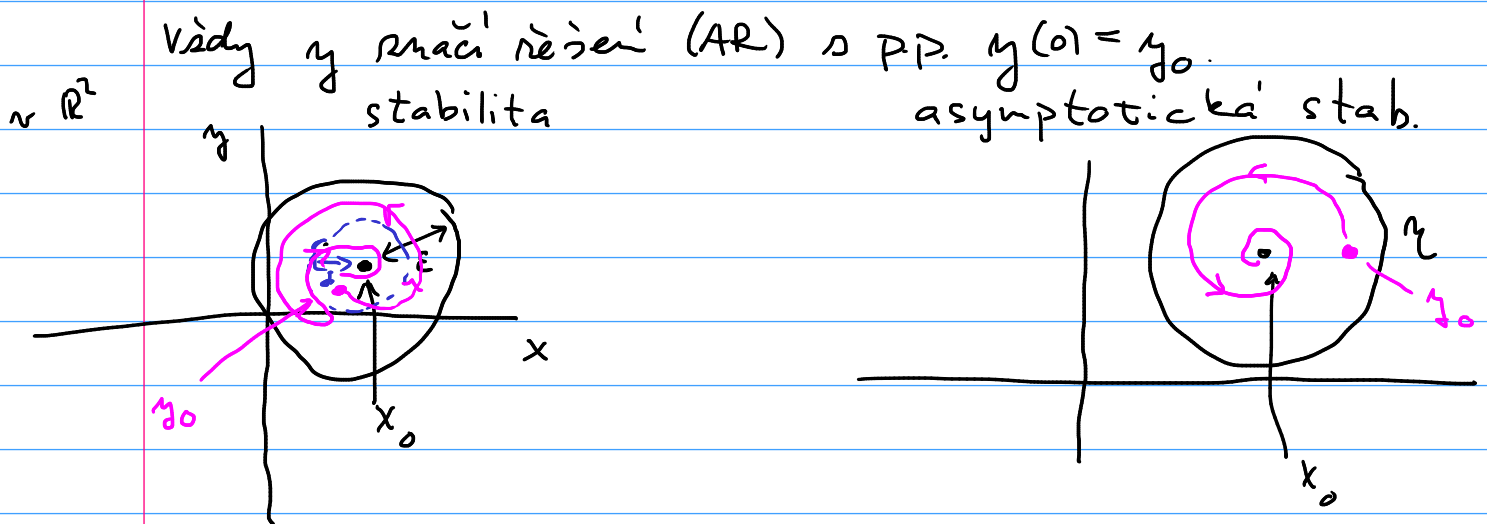 Vždy y značí řešení (AR) s p.p. y(0) = y₀.
v ℝ²
stabilita
asymptotická stab.
y
ε
δ
η
y₀
x
y₀
x₀
x₀